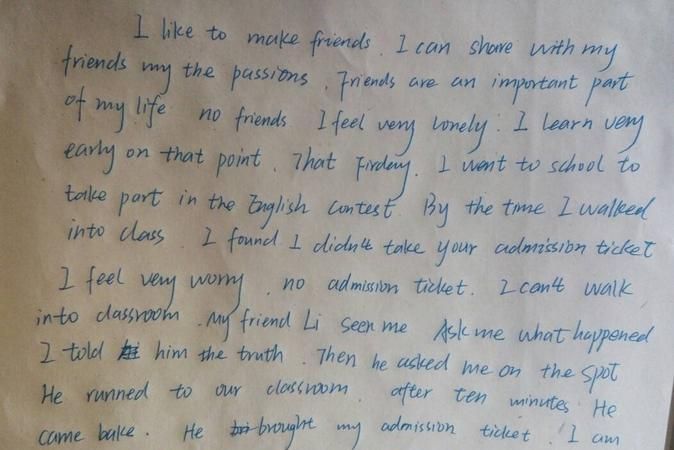 I like to make friends. I can share with my
friends my the passions. Friends are an important part
of my life no friends I feel very lonely. I learn very
early on that point. That Firday. I went to school to
take part in the English contest. By the time I walked
into class. I found I didn't take your admission ticket
I feel very worry. no admission ticket. I can't walk
into classroom. My friend Li seen me Ask me what happened
I told him the truth. Then he asked me on the spot
He runned to our classroom. after ten minutes He
came bake. He brought my admission ticket. I am